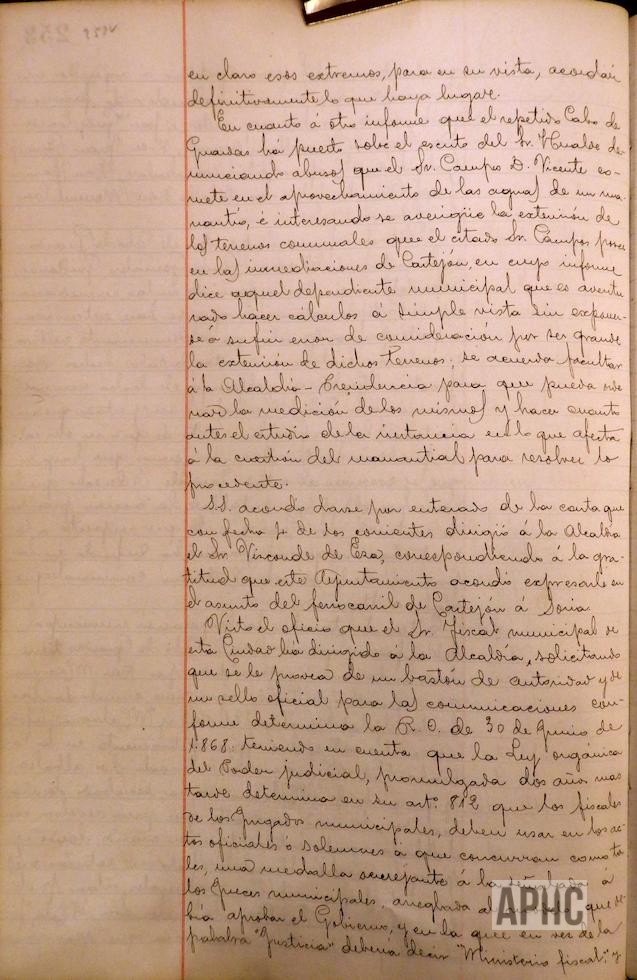 en claro esos extremos, para en su vista, acordar
definitivamente lo que haya lugar.
En cuanto á otro informe que el repetido Cabo de
Guardas há puesto sobre el escrito del Sr. Hualde de-
nunciando abusos que el Sr. Campos D. Vicente co-
mete en el aprovechamiento de las aguas de un ma-
nantío, é interesando se averigüe la extensión de
los terrenos comunales que el citado Sr. Campos posee
en las inmediaciones de Castejón, en cuyo informe
dice aquel dependiente municipal que es aventu-
rado hacer cálculos á simple vista sin exponer-
se á sufrir error de consideración por ser grande
la extensión de dichos terrenos; se acuerda facultar
á la Alcaldía-Presidencia para que pueda orde-
nar la medición de los mismos y hacer cuanto
antes el estudio de la instancia en lo que afecta
á la cuestión del manantial para resolver lo
procedente.
S.S. acordó darse por enterado de la carta que
con fecha 4 de los corrientes dirigió á la Alcaldía
el Sr. Vizconde de Eza, correspondiendo á la gra-
titud que este Ayuntamiento acordó expresarle en
el asunto del ferrocarril de Castejón á Soria.
Visto el oficio que el Sr. Fiscal municipal de
esta Ciudad ha dirigido á la Alcaldía, solicitando
que se le provea de un bastón de autoridad y de
un sello oficial para las comunicaciones con-
forme determina la R. O. de 30 de Junio de
1.868: teniendo en cuenta que la Ley orgánica
del Poder judicial, promulgada dos años mas
tarde determina en su artº. 812 que los fiscales
de los Juzgados municipales, deben usar en los ac-
tos oficiales ó solemnes á que concurran como ta-
les, una medalla semejante á la señalada á
los Jueces municipales, arreglada al que de-
bía aprobar el Gobierno, y en la que en vez de la
palabra "Justicia" debería decir "Ministerio fiscal"; y
APHC